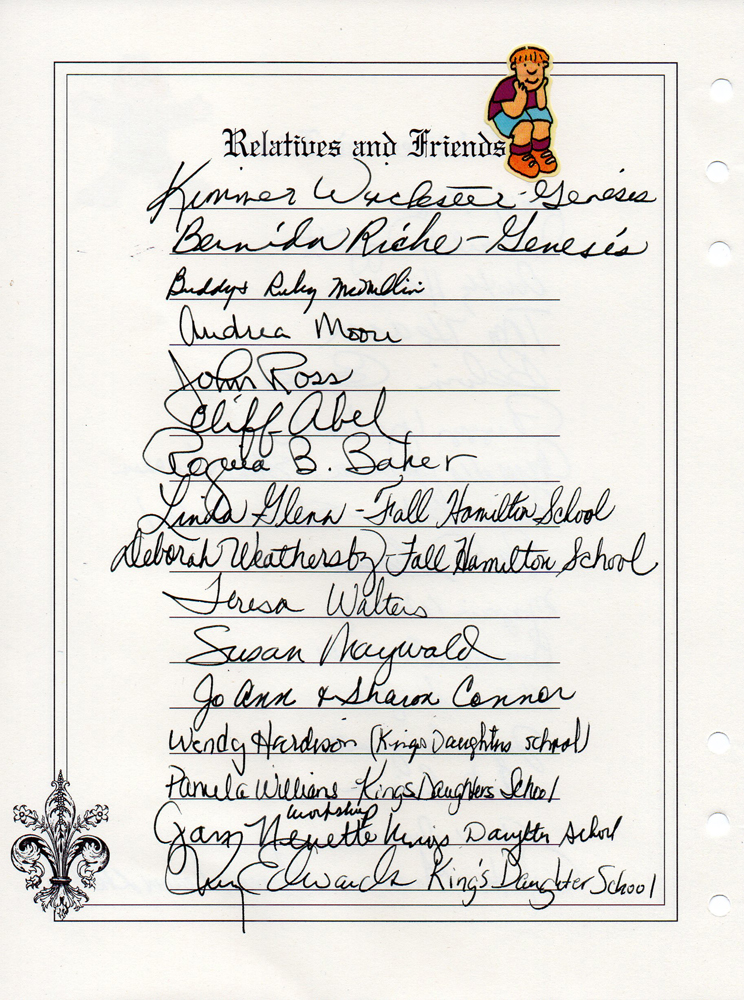 Relatives and Friends
Kimmer - Genesis
Bernida Riche - Genesis
Buddy & Ruby McMillin
Andrea Moore
John Ross
Cliff Abel
B. Baker
Linda Glenn - Fall Hamilton School
Deborah Weathersby - Fall Hamilton School
Teresa Walters
Susan Maywald
Jo Ann & Sharon Connor
Wendy Hardison (Kings Daughters School)
Pamela Williams - Kings Daughters School
workshop
Gary Daughter School
Edwards King's Daughter School